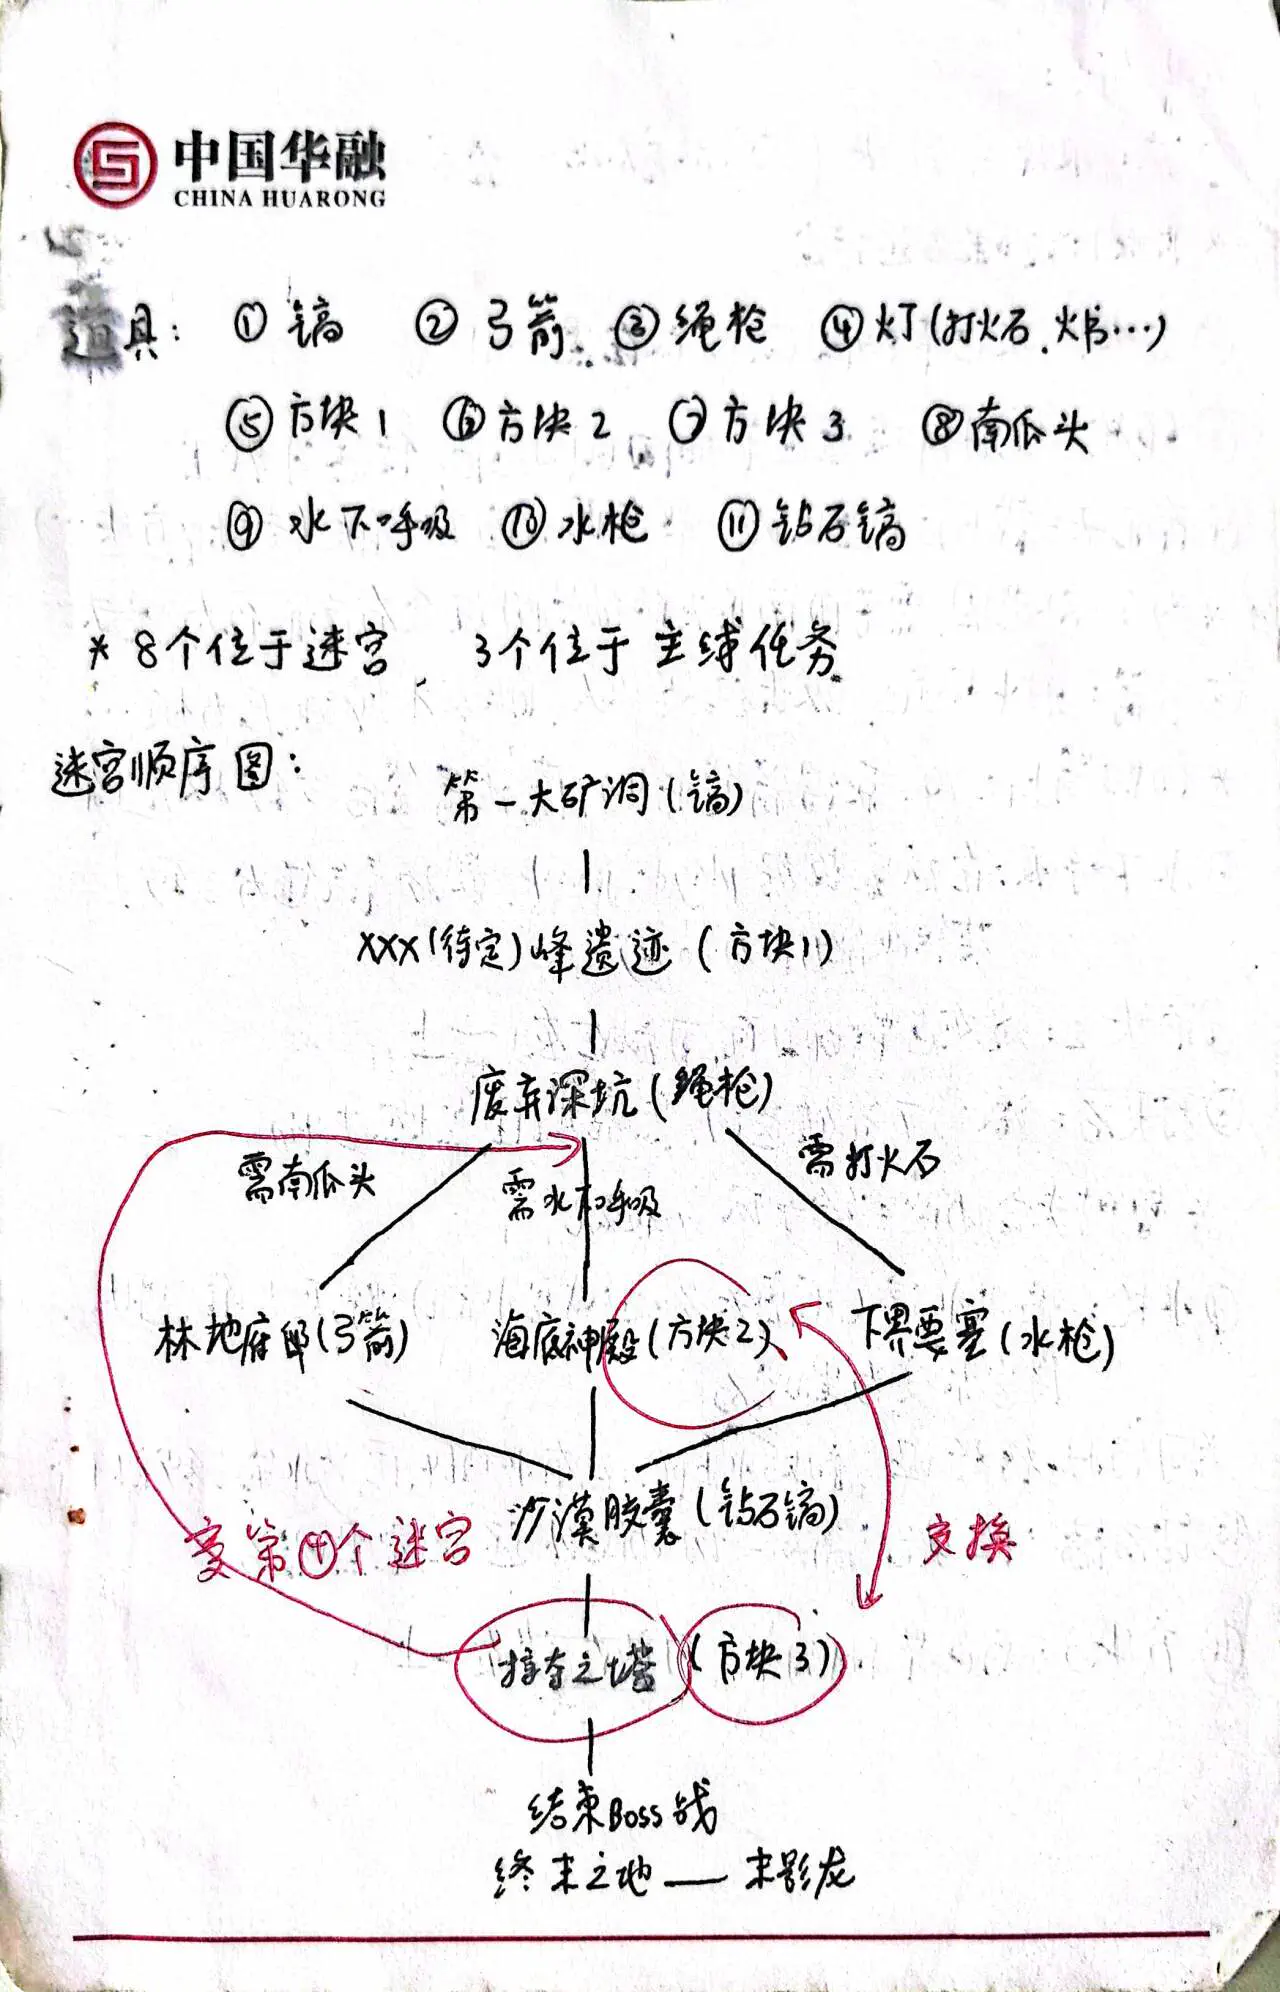 中国华融
CHINA HUARONG
道具： ① 镐 ② 弓箭 ③ 绳枪 ④ 灯(打火石、火书…)
⑤ 方块1 ⑥ 方块2 ⑦ 方块3 ⑧ 南瓜头
⑨ 水下呼吸 ⑩ 水枪 ⑪ 钻石镐
* 8个位于迷宫，3个位于主线任务
迷宫顺序图：
第一大矿洞(镐)
XXX(待定)峰遗迹(方块1)
废弃深坑(绳枪)
需南瓜头 需水下呼吸 需打火石
林地府邸(弓箭) 海底神殿(方块2) 下界要塞(水枪)
沙漠胶囊(钻石镐)
变第④个迷宫 交换
掠夺之塔 (方块3)
结束Boss战
终末之地——末影龙